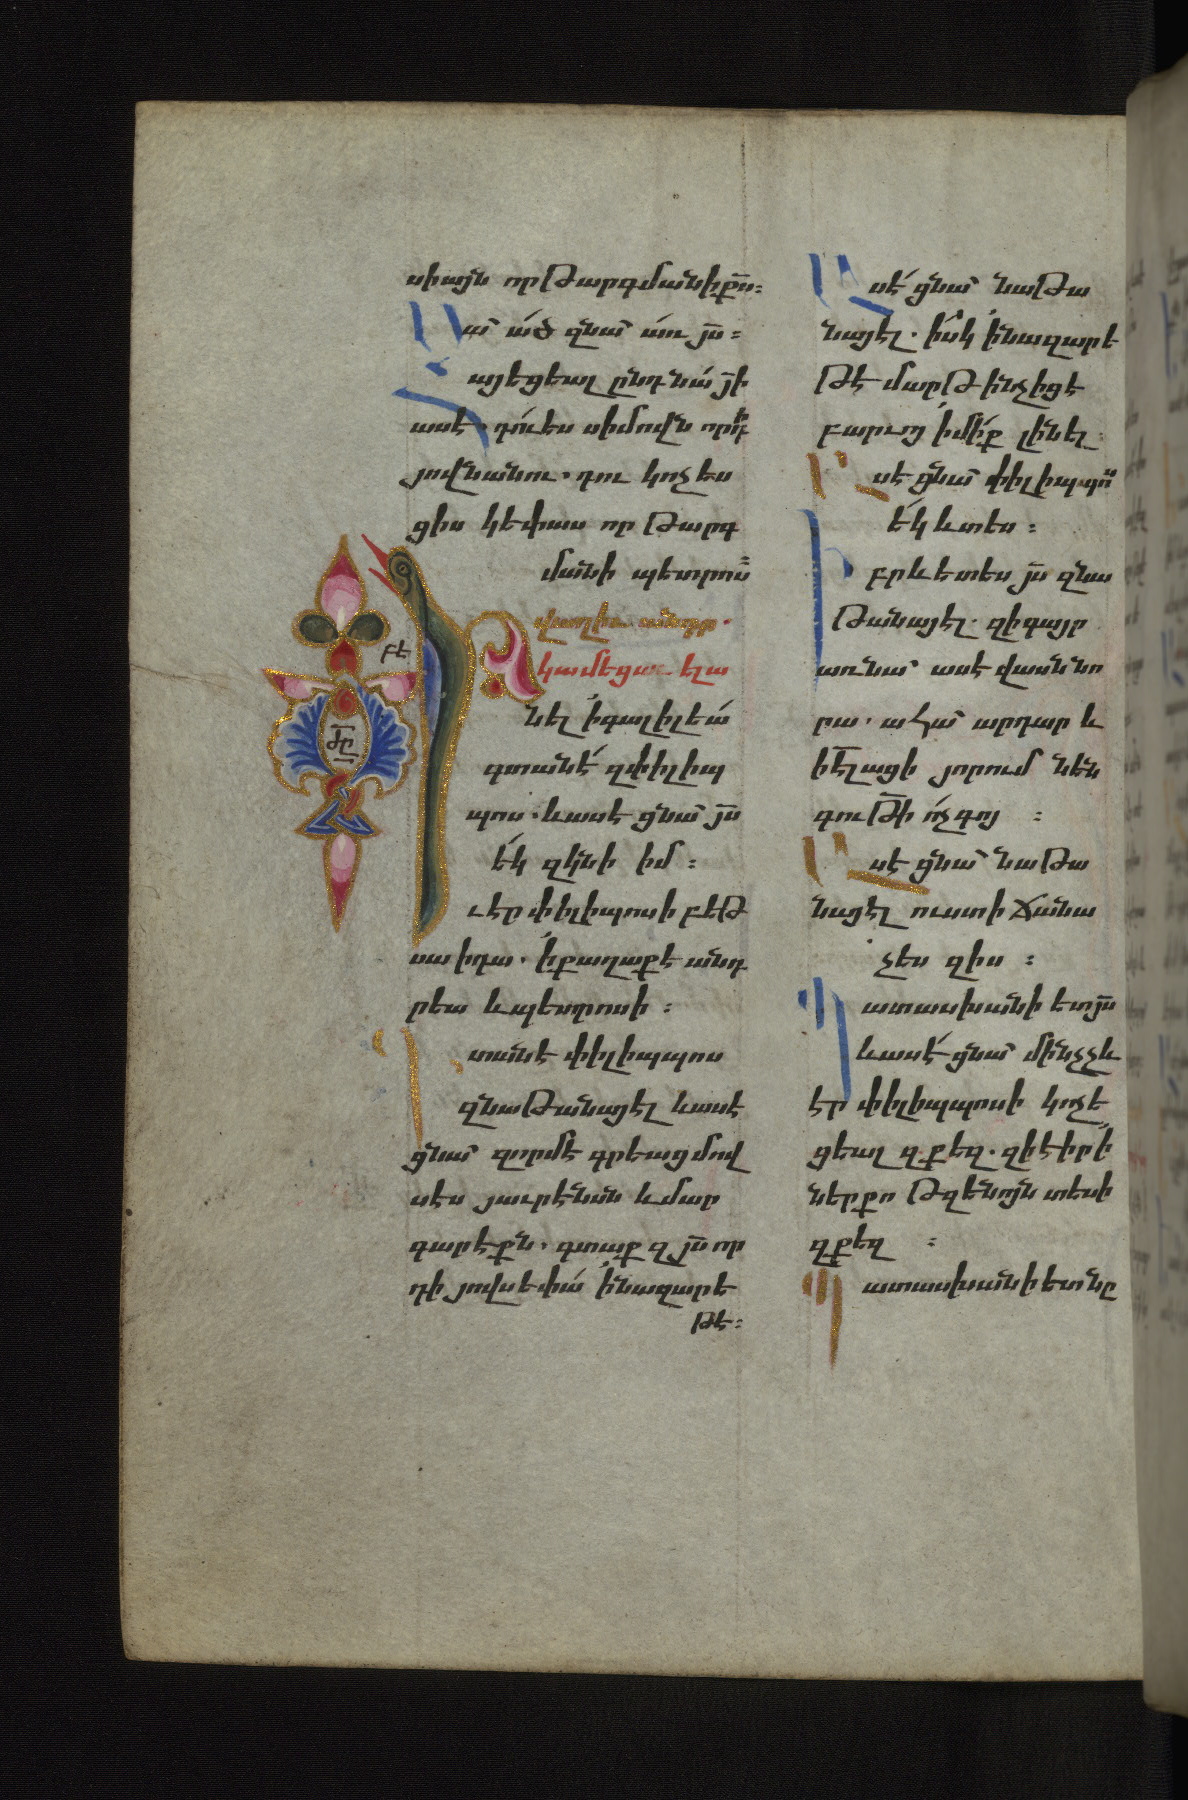 սիայն որ թարգմանի ք̅ս։
Սա՛ ած զնա՛ առ յ̅ս։
Հայեցեալ ընդ նա՛ յ̅ի
ասէ. դու ես սիմովն որդի
յովնանու. դու կոչես
ցիս կեփաս որ թարգ
մանի պետրոս։
բե
Ի վաղիւ անդր.
կամեցաւ ելա
նել ի գալիլեա՛
ժ̅ը̅
գտանէ՛ զփիլիպ
պոս. և ասէ ցնա՛ յ̅ս
ե՛կ զկնի իմ։
Եւ էր փիլիպոս ի բեթ
սաիդա. ի քաղաքէ անդ
րեա և պետրոսի։
Գտանէ փիլիպպոս
զնաթանայել և ասէ
ցնա՛ զորմէ գրեաց մով
սէս յաւրէնսն և մար
գարէքն. գտաք զյ̅ս որ
դի յովսեփա՛ ի նազարե
թէ։
Ասէ՛ ցնա՛ նաթա
նայէլ. իսկ ի նազարե
թէ մարթ ինչ իցէ
բարւոյ իմիք լինել։
Ասէ ցնա՛ փիլիպպոս
ե՛կ և տես։
Իբրև ետես յ̅ս զնա
թանայէլ. զի գայր
առ նա՛ ասէ վասն նո
րա. ահա՛ արդար և
ի̅է̅լացի յորում նեն
գութի ո՛չ գոյ։
Ասէ ցնա՛ նաթա
նայէլ ուստի ճանա
չես զիս։
Պատասխանի ետ յ̅ս
և ասէ՛ ցնա՛ մինչչև
էր փիլիպպոսի կոչե
ցեալ զքեզ. զի էիր ի
ներքո թզենոյն տեսի
զքեզ։
Պատասխանի ետ նը